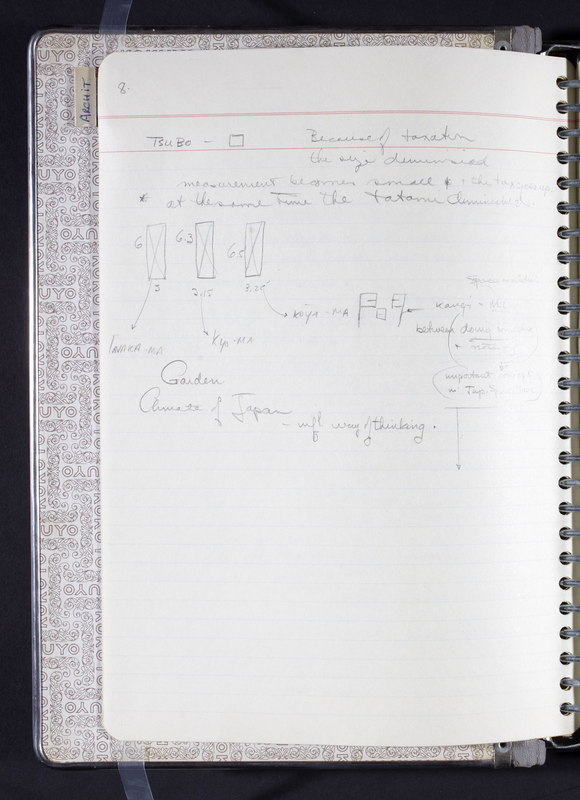 ARCHIT
8.
TSUBO - □ Because of taxation
the size diminished
measurement becomes small + the taxes up.
* at the same time the tatami diminished.
6 6.3 6.5
3 3.15 3.25
space
INAKA-MA KYO-MA KOYA-MA kanji -
between doing
+
Garden important concept
in Jap.
Climate of Japan
- infl way of thinking.